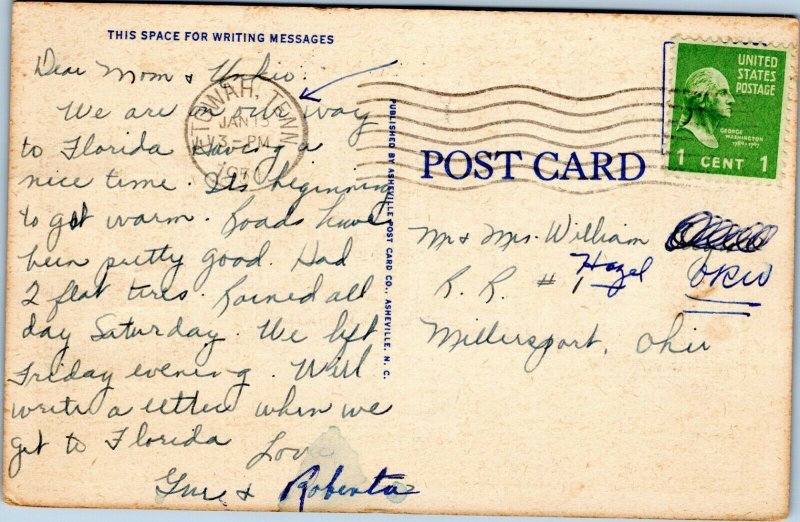 THIS SPACE FOR WRITING MESSAGES
Dear Mom &
We are on our way
to Florida Having a
nice time. Its beginning
to get warm. Roads have
been pretty good. Had
2 flat tires. Rained all
day Saturday. We left
Friday evening. Will
write a letter when we
get to Florida
Love
&
Roberta
ETOWAH, TENN
JAN
PM
PUBLISHED BY ASHEVILLE POST CARD CO., ASHEVILLE, N. C.
POST CARD
UNITED
STATES
POSTAGE
GEORGE
WASHINGTON
1 CENT 1
Mr & Mrs. William
Hazel
R. R. # 1
Millersport, Ohio